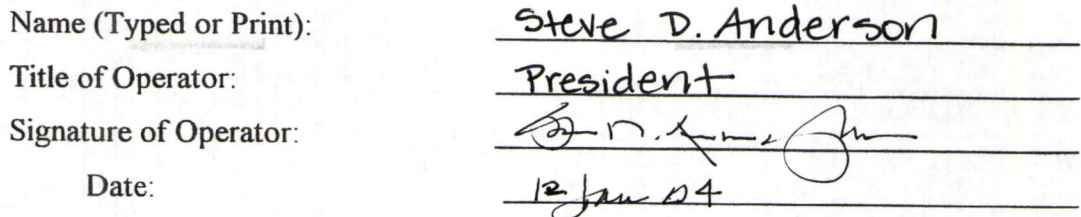 Name (Typed or Print): Steve D. Anderson
Title of Operator: President
Signature of Operator:
Date: 12 Jan 04